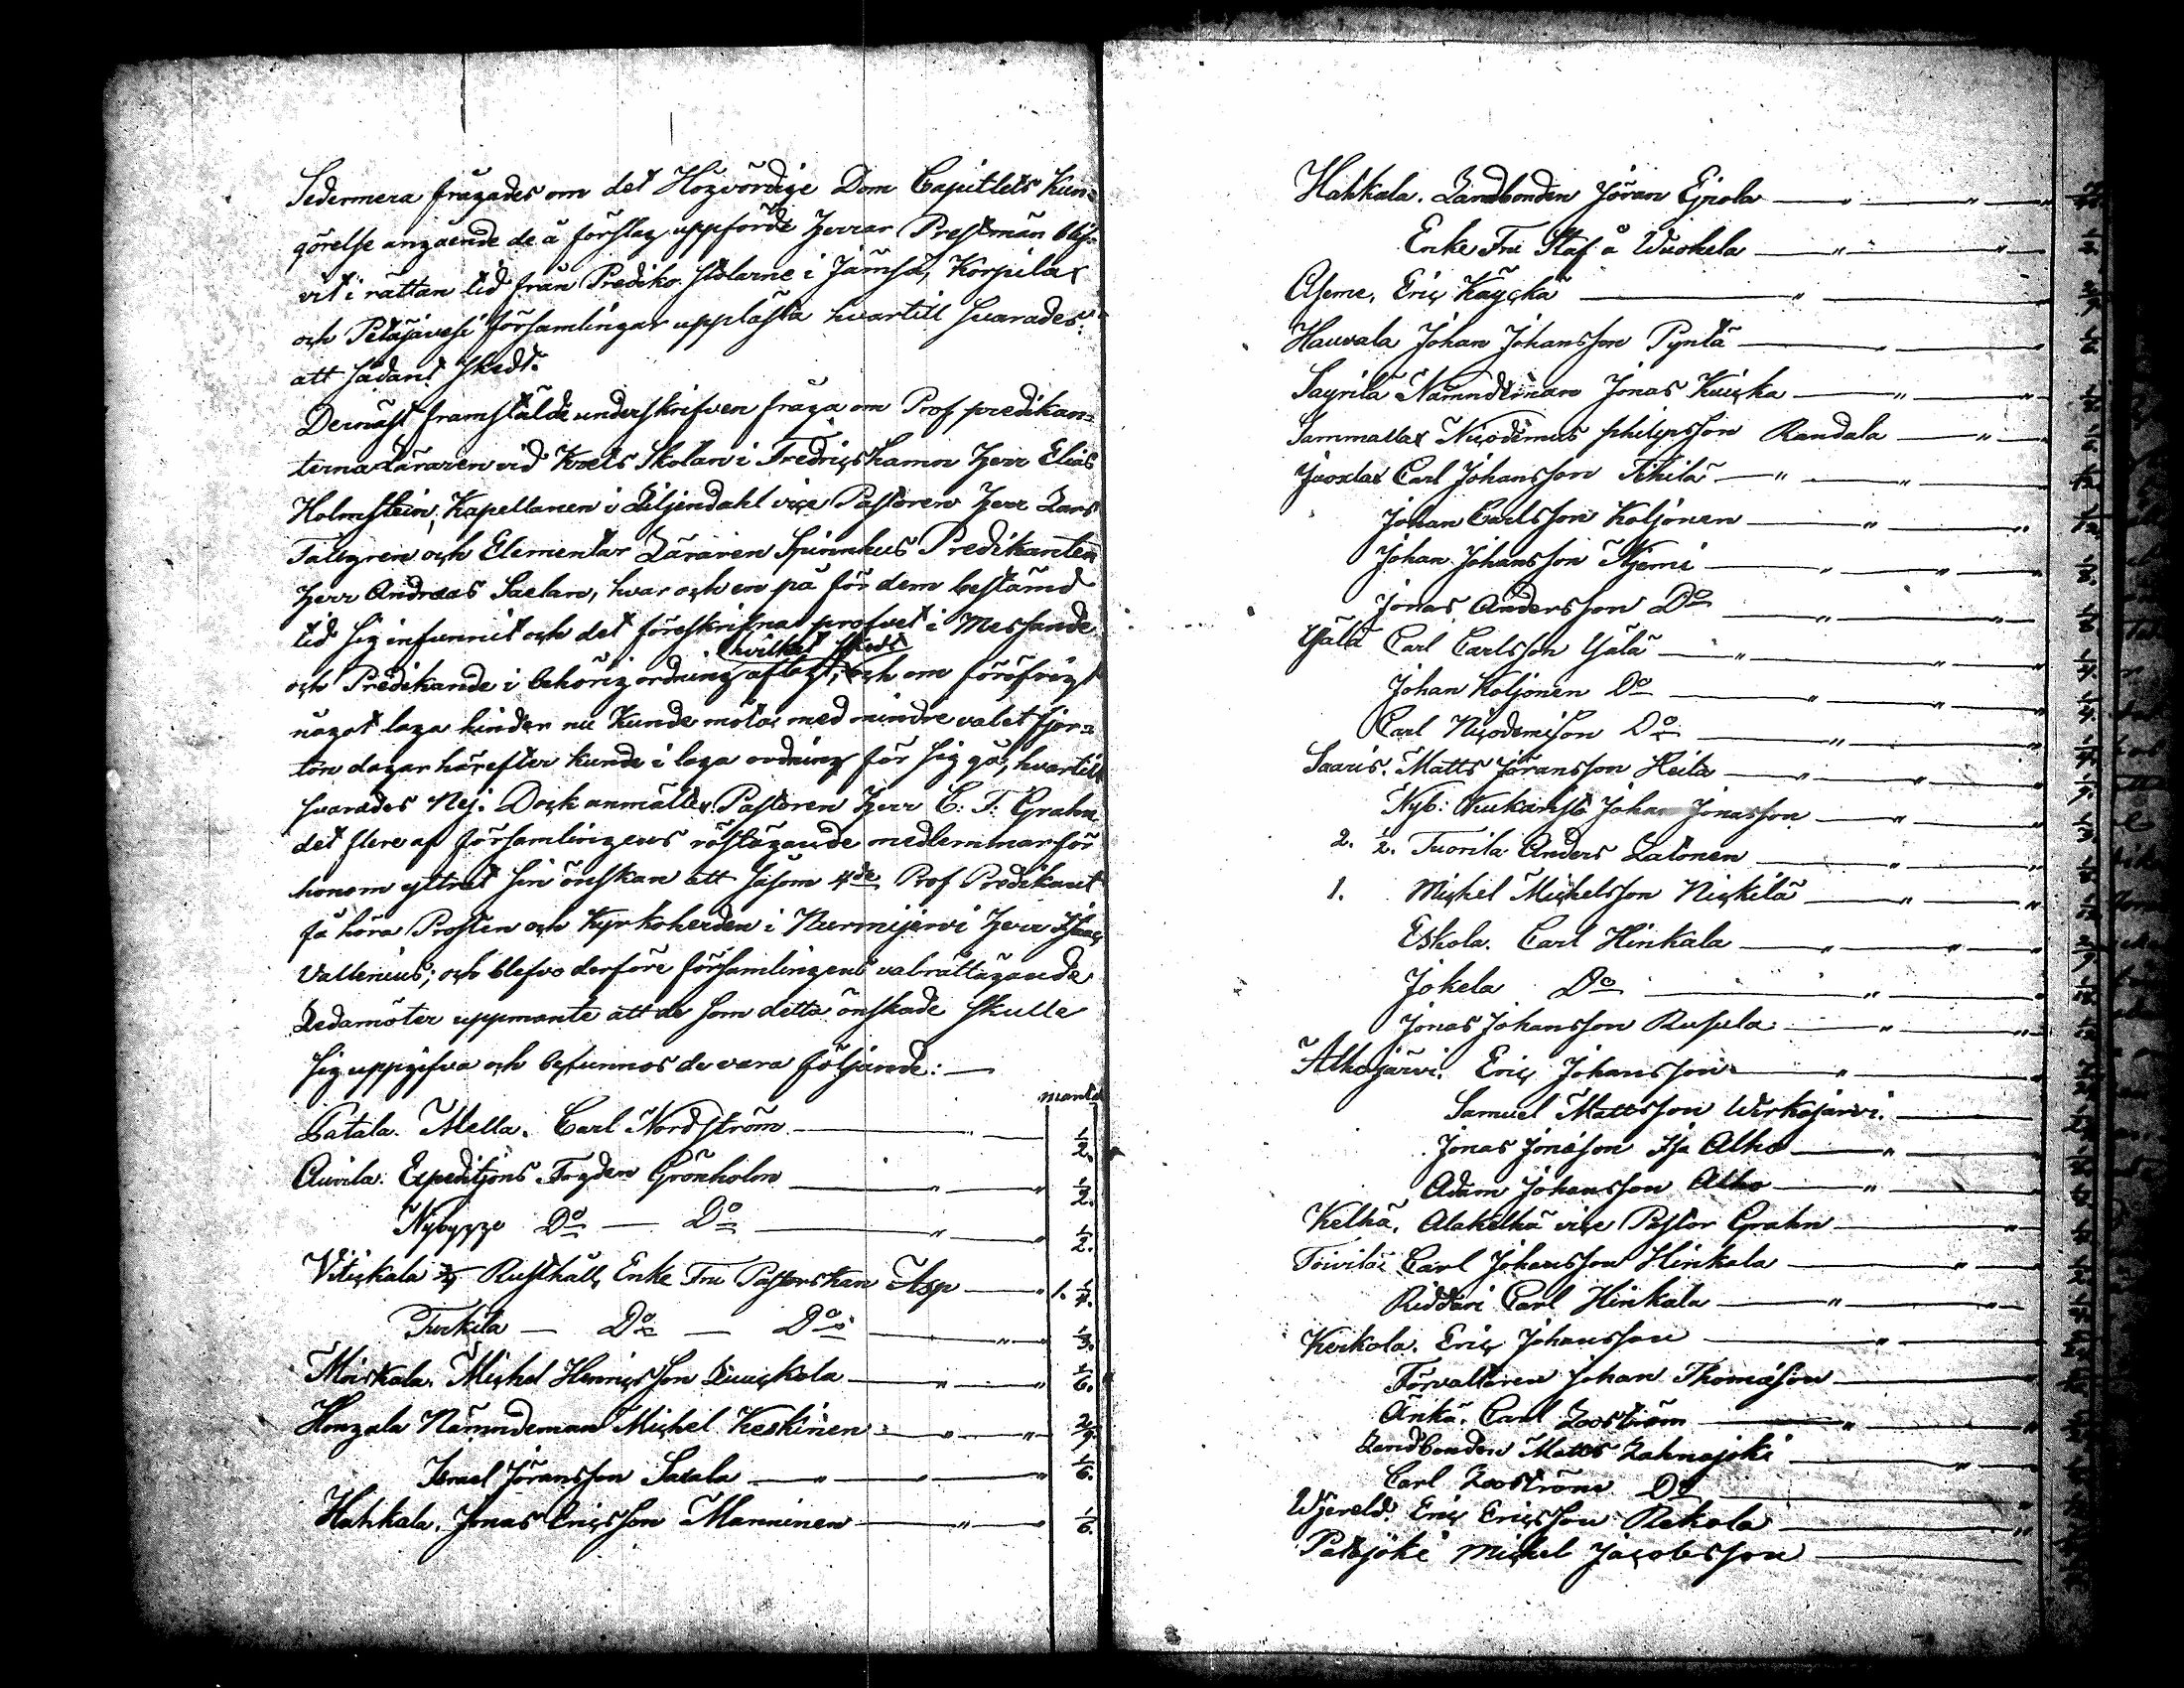 Sedermera frågades om det Högvördige Dom Capitlets Kun=
görelse angående de å förslag uppförde Herrar Prestmän blif=
vit i rättan tid från Predikostolarne i Jämsä, Korpilax
och Petäjävesi församlingar upplästa hvartill svarades:
att sådant skedt.
Dernäst framstälde underskrifven fråga om Prof predikan=
terna Läraren vid Krets Skolan i Fredricshamn Herr Elias
Holmstein, Kapellanen i Liljendahl vice Pastoren Herr Lars
Tallgren och Elementar Läraren Spinnhus Predikanten
Herr Andreas Saelan, hvar och en på för dem bestämd
tid sig infunnit och det föreskrifna profvet i Messande
hvilket skedt
och Predikande i behörig ordning aflagt, och om föröfrigt
något laga hinder nu kunde möta med mindre valet fjor=
ton dagar härefter kunde i laga ordning för sig gå, hvartill
svarades Nej. Dock anmälte Pastoren Herr C: F: Grahn
det flere af församlingens röstägande medlemmar för
honom yttrat sin önskan att såsom 4de Prof Predikant
få höra Prosten och Kyrkoherden i Nurmijervi Herr Isaac
Vallenius; och blefvo derföre församlingens valrättägande
Ledamöter uppmante att de som detta önskade skulle
sig uppgifva och befunnos de vara följande: —
mantal
Patala. Mella. Carl Nordström — 1/2.
Auvila. Expeditions Fogden Grönholm — " — " 1/2.
Nybygge Do — Do — " — " 1/2.
Vitickala Rusthåll, Enke Fru Pastorskan Asp — " 1. 1/4.
Turkila — Do — Do — " — " 1/3.
Moiskala. Michel Henricsson — " — " 1/6.
Hongala Nämndeman Michel Keskinen — " — " 2/9.
Israel Jöransson Satala — " — " — " 1/6.
Hahkala. Jonas Ericsson Manninen — " — " 1/6.
Hahkala. Landbonden Jöran Ejrola — " — " — "
Enke Fru Staf å Wuokela — " — " — 1/2
Aseme, Eric Käyckä — " —
Hauvala Johan Johansson Pyntä — " — "
Sayrilä Nämndeman Jonas Kuicka — " — "
Sammallax Nicodemus philipsson Randala — " —
Juoxlax Carl Johansson Tihilä — " — " —
Johan Carlsson Koljonen — " — "
Johan Johansson Njemi — " — " — "
Jonas Andersson Do — " — " —
Yälä Carl Carlsson Yälä — " — " — "
Johan Koljonen Do — " — " — "
Carl Nicodemison Do — " — "
Saaris. Matts Jöransson Heilä — " — " —
Nyb: Johan Jonasson — " — "
2. 1/2. Tuorila Anders Latonen — " — "
1. Michel Michelsson Nickilä — " — "
Eskola. Carl Hinkala — " — " —
Jokela Do — " —
Jonas Johansson Rusula — " — "
Alhojärvi. Eric Johansson — " —
Samuel Mattsson Wirkajärvi. —
Jonas Jonasson Isa Alho — " —
Adam Johansson Alho — " —
Kelhä. Alakelhä vice Pastor Grahn — " —
Toivila. Carl Johansson Hinkala — " —
Riddari Carl Hinkala — " — " —
Kerkola. Eric Johansson — " —
Förvaltaren Johan Thomasson —
Ankä. Carl Zooström — " — "
Landbonden Matts Lahnajoki — " —
Carl Zooström Do — "
Eric Ericsson Rekola — "
Patajoki Michel Jacobsson —